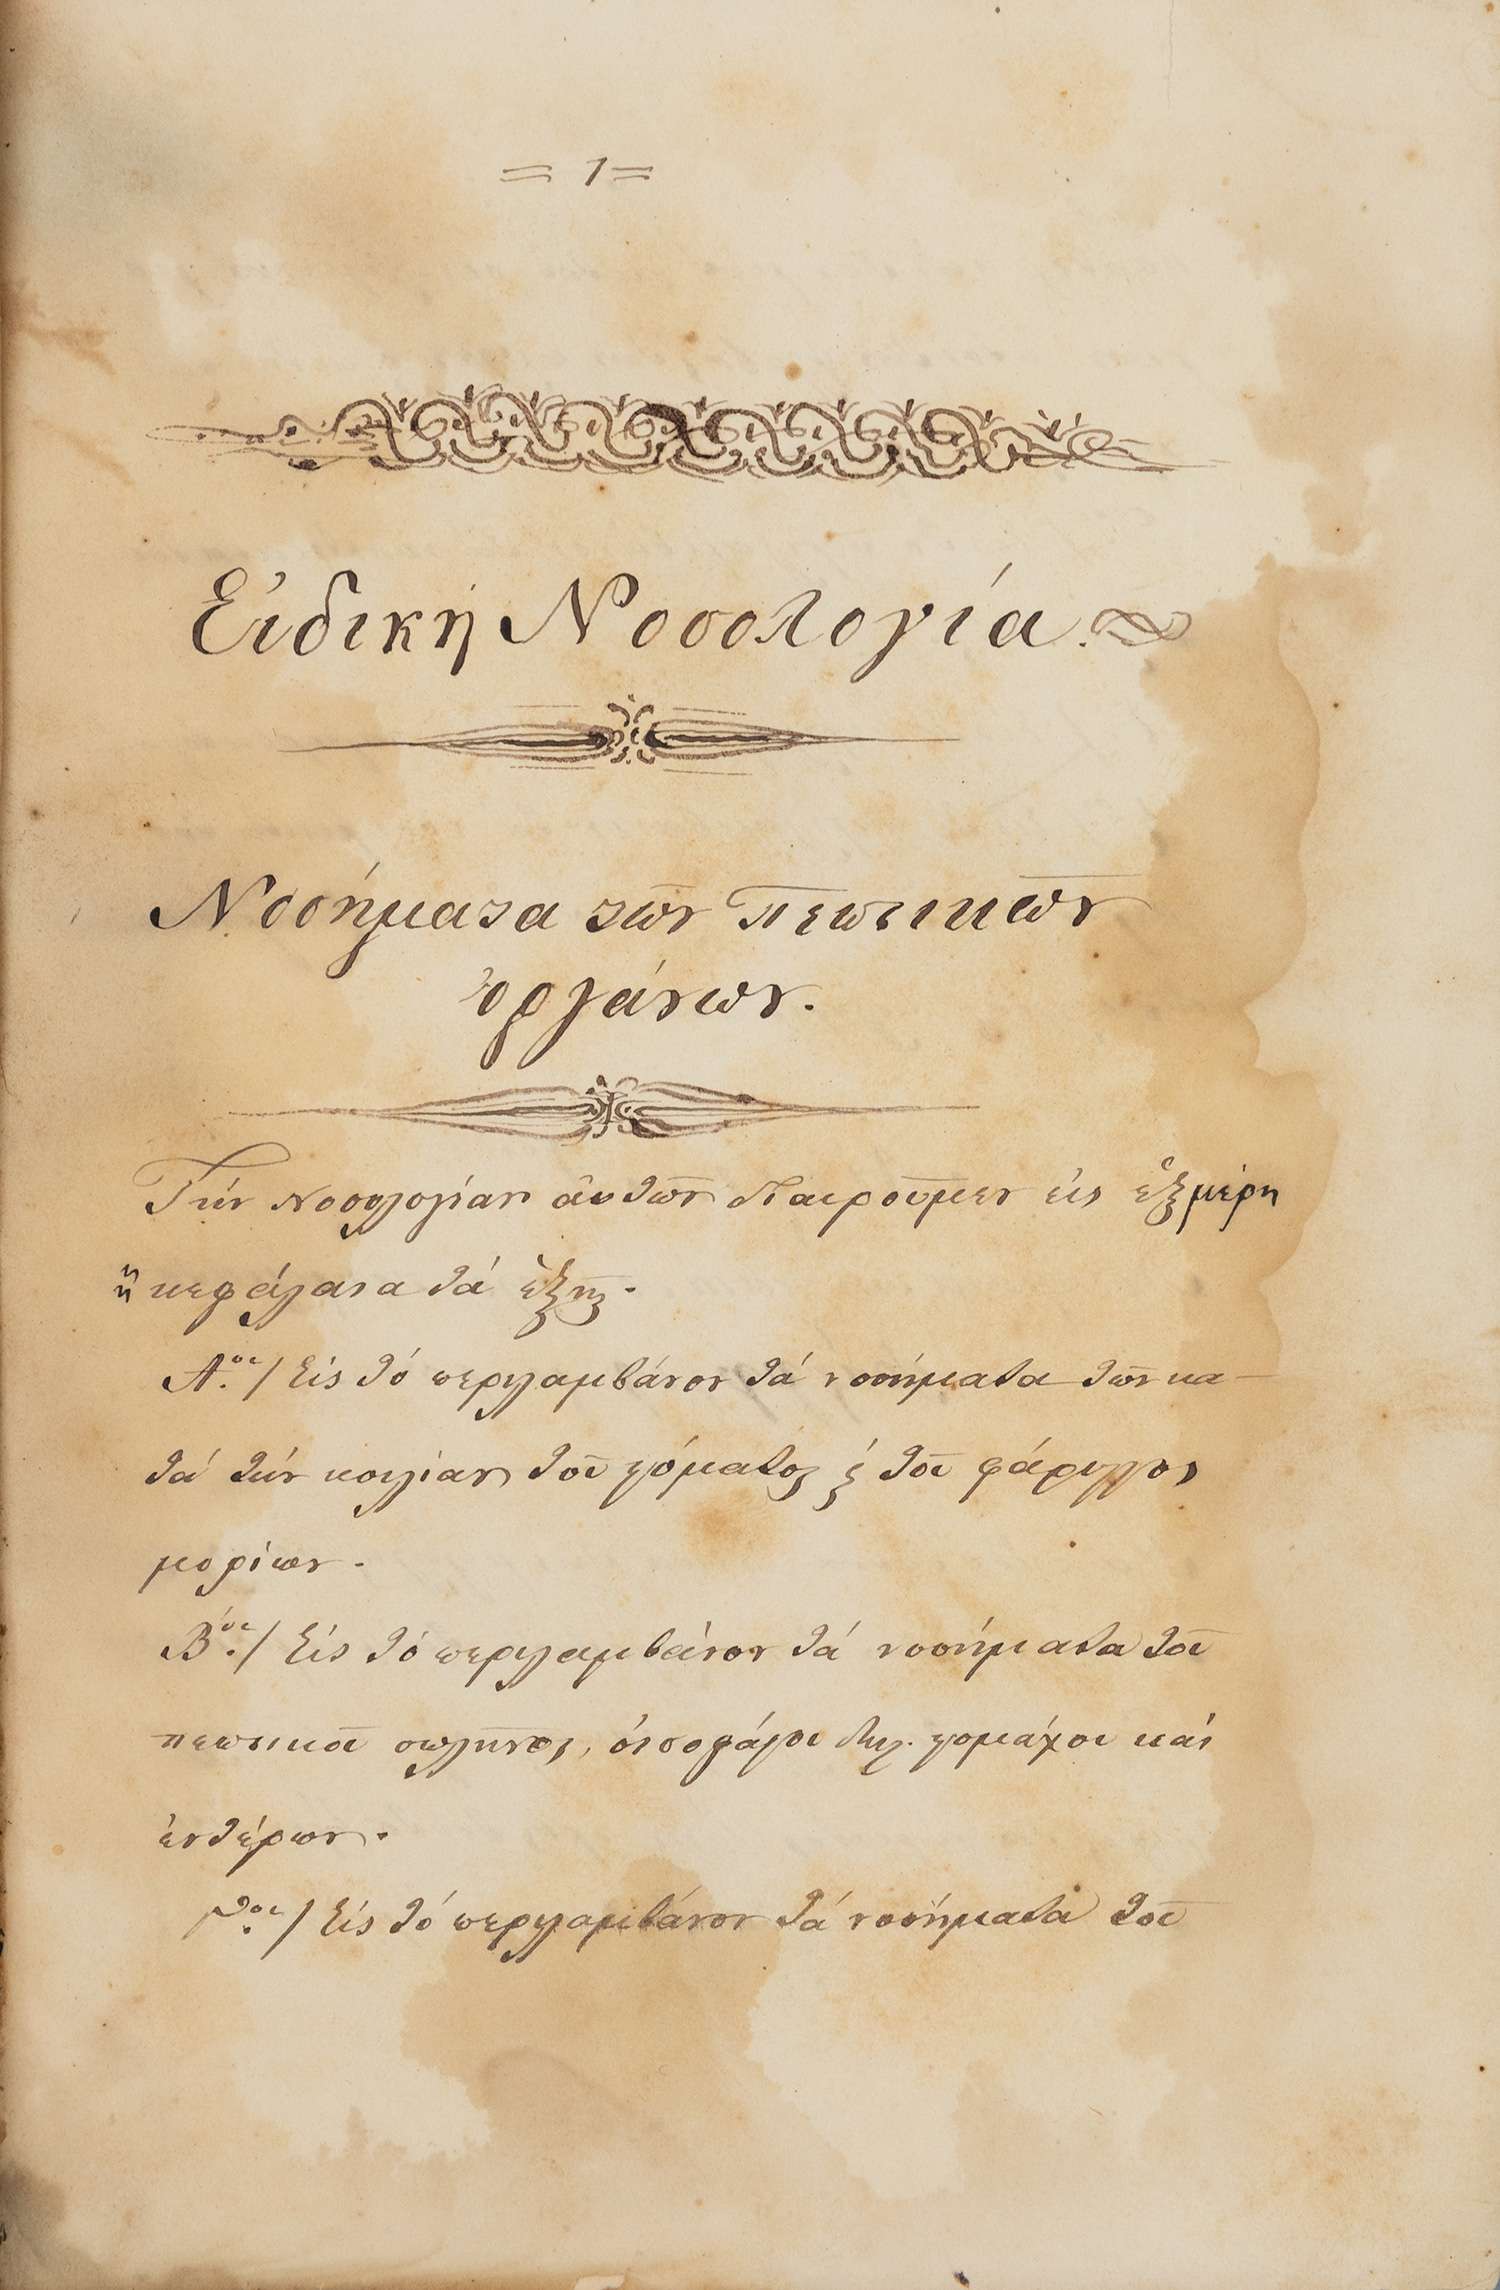 = 1 =
Εἰδικὴ Νοσολογία.
Νοσήματα τῶν πεπτικῶν
ὀργάνων.
Τήν Νοσολογίαν αὐτῶν διαιροῦμεν εἰς ἓξ μέρη
ἢ κεφάλαια τά ἑξῆς.
Αον./ Εἰς τό περιλαμβάνον τά νοσήματα τῶν κα-
τά τήν κοιλίαν τοῦ στόματος ϗ τοῦ φάρυγγος
μορίων.
Βον./ Εἰς τό περιλαμβάνον τά νοσήματα τοῦ
πεπτικοῦ σωλῆνος, οἰσοφάγου δηλ. στομάχου καί
ἐντέρων.
Γον./ Εἰς τό περιλαμβάνον τά νοσήματα τοῦ